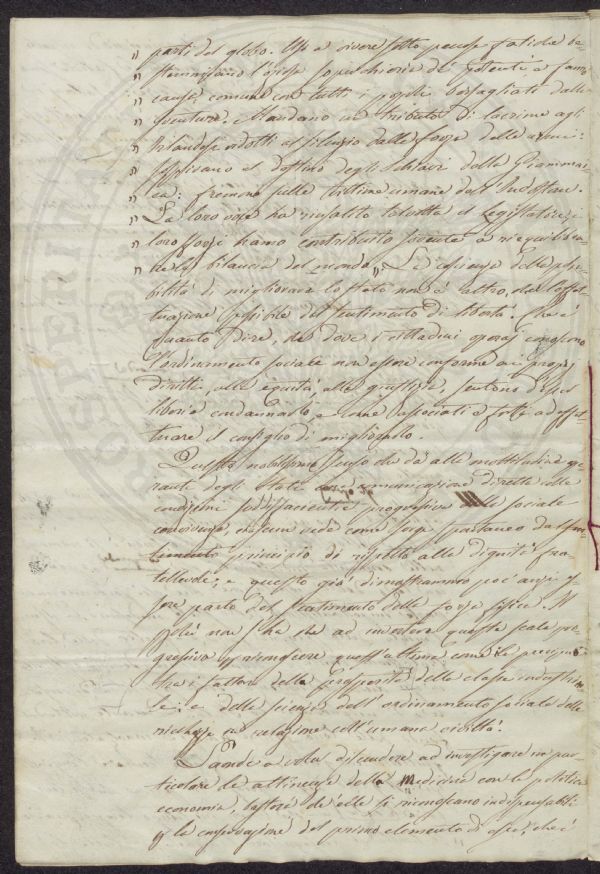 " parti del globo. Usi a vivere sotto penose fatiche be-
" stemmiano l'oziosa soperchieria de' potenti e fanno
" causa comune con tutti i popoli bersagliati dalla
" sventura. Mandano un tributo di lacrime agli
" Irlandesi ridotti al silenzio dalla forza delle armi:
" sospirano il destino degli schiavi della Giammai-
" ca: fremono sulle vittime umane dell' Indostan.
" La loro voce ha talvolta il Legislatore, i
" loro sforzi hanno contribuito sovente a riequilibra-
" re la bilancia del mondo". La coscienza della possi-
bilità di migliorare lo stato non è altro, che l'effet-
tuazione sensibile del sentimento di libertà. Che è
quanto dire, che dove i cittadini operaj conoscono
l'ordinamento sociale non essere conforme ai proprj
diritti, alla equità, alla giustizia, sentono di esser
liberi a condannarlo e come associati e forti ad effet-
tuare il consiglio di migliorarlo.
Questo nobilissimo senso che dà alla moltitudine
degli Stati comunicazione diretta colle
condizioni progressive sociale
convivenza, ciascun vede come sorge spontaneo dal
principio di rispetto alla dignità fra-
tellevole; e questo già dimostrammo poc'anzi es-
sere parto del sentimento della forza fisica. Al
non s'ha che ad invertere questa scala pro-
gressiva riconoscere quest'ultimo come il precipuo
tra i fattori della prosperità della classe industria-
le; e della scienza dell'ordinamento sociale delle
ricchezze in relazione coll'umana civiltà.
a voler discendere ad investigare in par-
ticolare le attinenze della Medicina con la politica
economia, che elle si riconoscano indispensabili
la conservazione del primo elemento di essa, che è